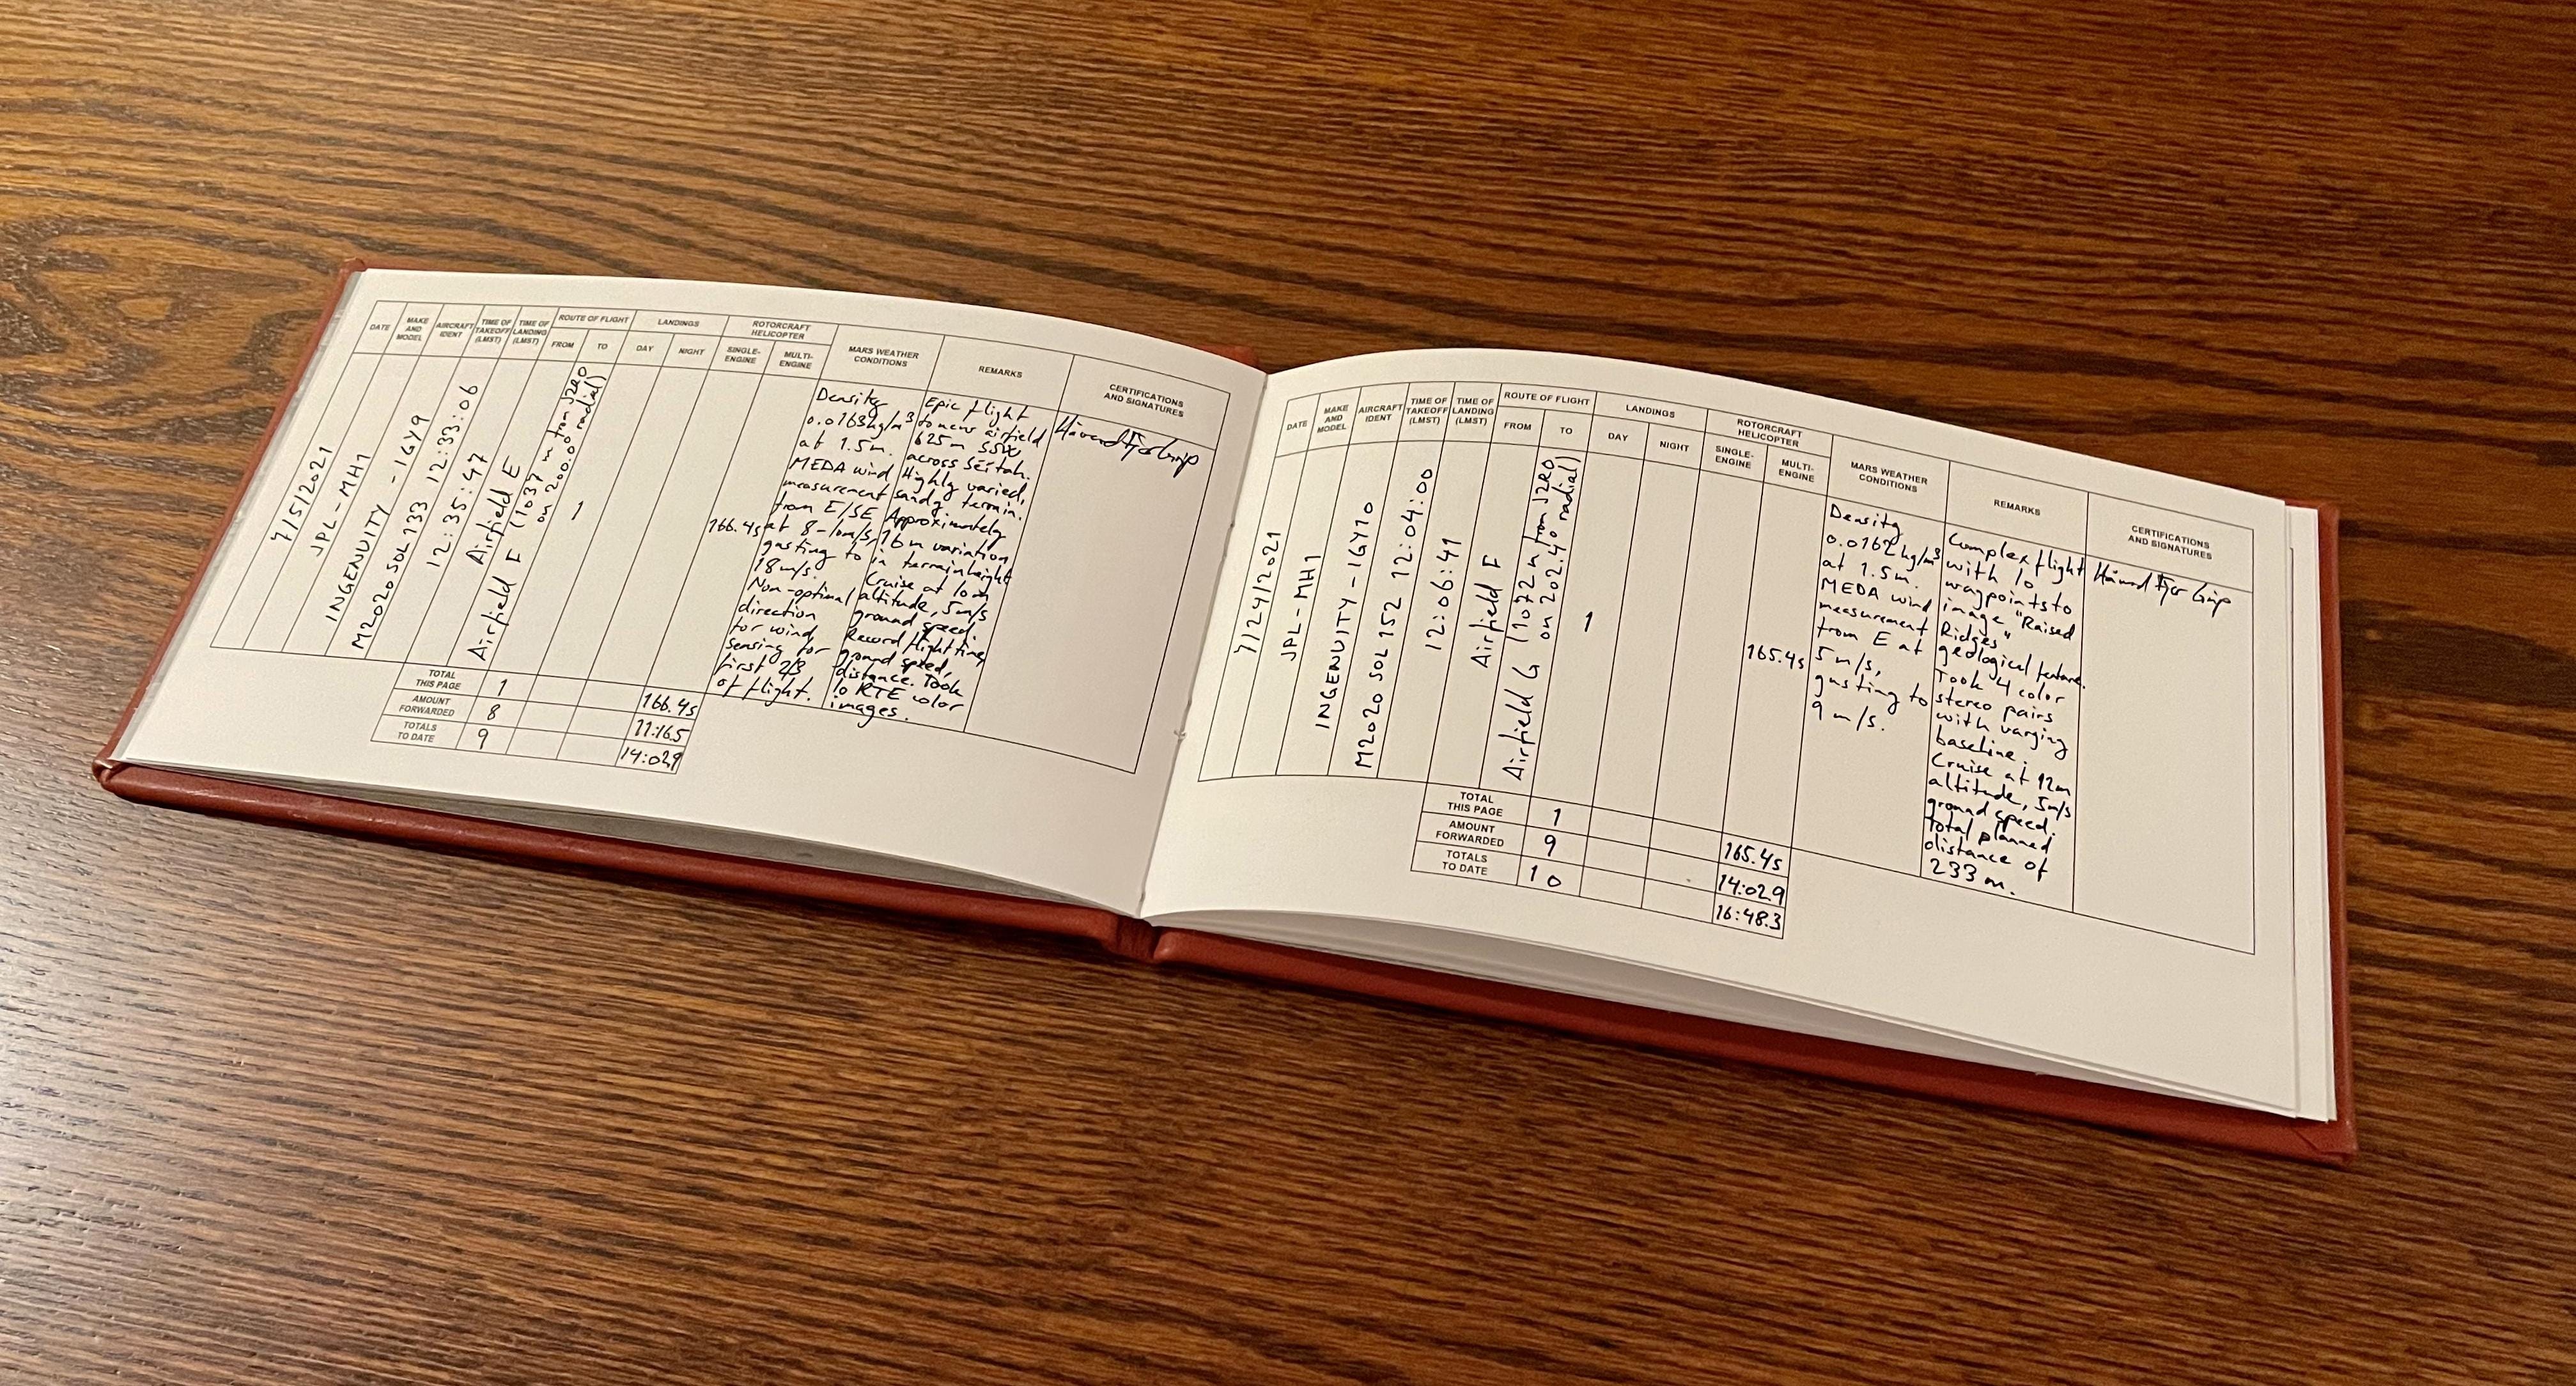 DATE
MAKE
AND
MODEL
AIRCRAFT
IDENT
TIME OF
TAKEOFF
(LMST)
TIME OF
LANDING
(LMST)
ROUTE OF FLIGHT
FROM
TO
LANDINGS
DAY
NIGHT
ROTORCRAFT
HELICOPTER
SINGLE-
ENGINE
MULTI-
ENGINE
MARS WEATHER
CONDITIONS
REMARKS
CERTIFICATIONS
AND SIGNATURES
7/5/2021
JPL-MH1
INGENUITY - IGY9
M2020 SOL 133 12:33:06
12:35:47
Airfield E
Airfield F (1037 m from JZRO
on 200.0° radial)
1
166.4s
Density
0.0163kg/m³
at 1.5m.
MEDA wind
measurement
from E/SE
at 8-10m/s,
gusting to
18m/s.
Non-optimal
direction
for wind
sensing for
first 2/3
of flight.
Epic flight
to new airfield
625m SSW
across Séítah.
Highly varied,
sandy terrain.
Approximately
16m variation
in terrain height
Cruise at 10m
altitude, 5m/s
ground speed.
Record flight time,
ground speed,
distance. Took
10 RTE color
images.
Håvard Fjær Grip
TOTAL
THIS PAGE
1
166.4s
AMOUNT
FORWARDED
8
11:16.5
TOTALS
TO DATE
9
14:02.9
DATE
MAKE
AND
MODEL
AIRCRAFT
IDENT
TIME OF
TAKEOFF
(LMST)
TIME OF
LANDING
(LMST)
ROUTE OF FLIGHT
FROM
TO
LANDINGS
DAY
NIGHT
ROTORCRAFT
HELICOPTER
SINGLE-
ENGINE
MULTI-
ENGINE
MARS WEATHER
CONDITIONS
REMARKS
CERTIFICATIONS
AND SIGNATURES
7/24/2021
JPL-MH1
INGENUITY - IGY10
M2020 SOL 152 12:04:00
12:06:41
Airfield F
Airfield G (1072 m from JZRO
on 202.4° radial)
1
165.4s
Density
0.0162kg/m³
at 1.5m.
MEDA wind
measurement
from E at
5m/s,
gusting to
9 m/s.
Complex flight
with 10
waypoints to
image "Raised
Ridges"
geological feature.
Took 4 color
stereo pairs
with varying
baseline.
Cruise at 12m
altitude, 5m/s
ground speed.
Total planned
distance of
233 m.
Håvard Fjær Grip
TOTAL
THIS PAGE
1
165.4s
AMOUNT
FORWARDED
9
14:02.9
TOTALS
TO DATE
10
16:48.3